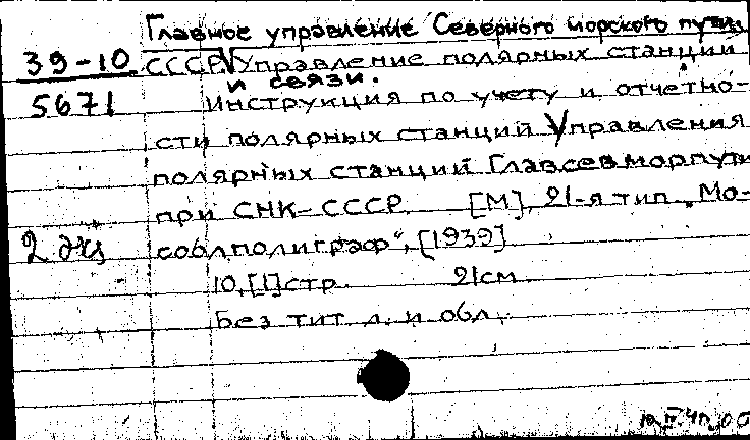 Главное управление Северного морского пути
39-10 СССР. Управление полярных станций
и связи.
5671 Инструкция по учету и отчетно-
сти полярных станций Управления
полярных станций Главсевморпути
при СНК-СССР. [М], 21-я тип. „Мо-
2 экз соблполиграф“, [1939]
10, [1] стр. 21см.
Без тит. л. и обл.